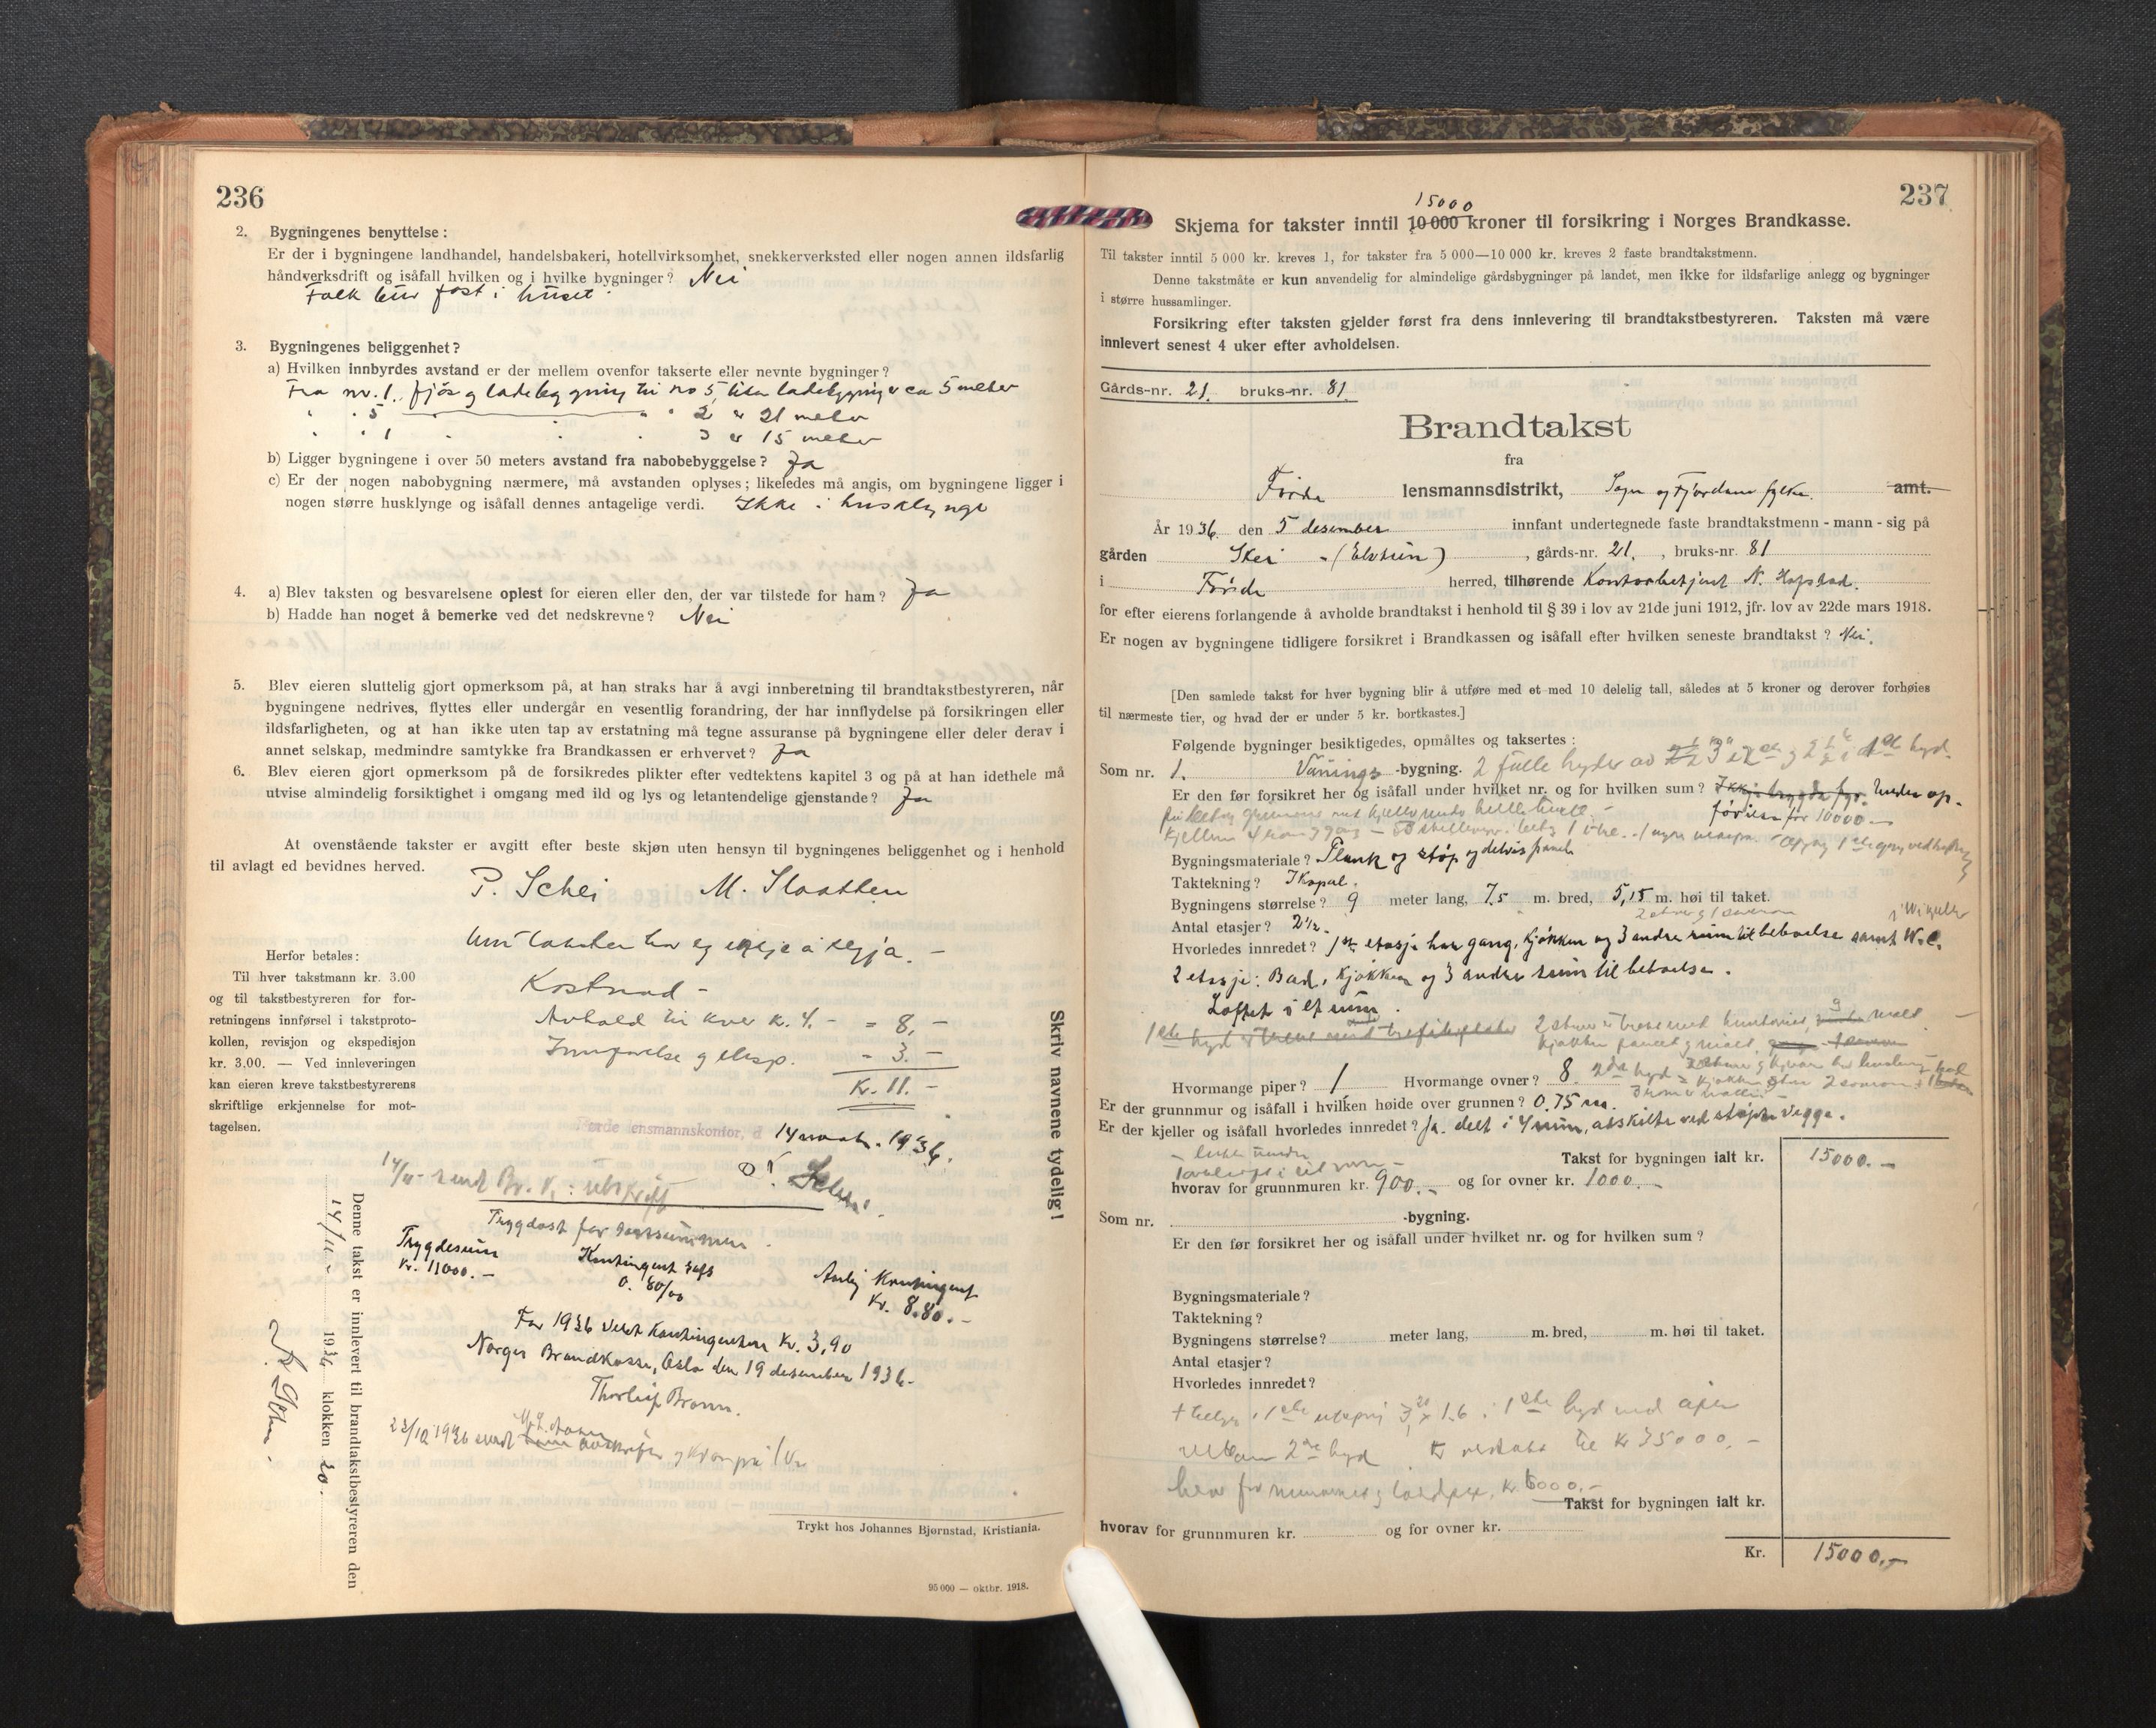 236
2. Bygningenes benyttelse:
Er der i bygningene landhandel, handelsbakeri, hotellvirksomhet, snekkerverksted eller nogen annen ildsfarlig
håndverksdrift og isåfall hvilken og i hvilke bygninger? Nei
Folk bur fast i huset.
3. Bygningenes beliggenhet?
a) Hvilken innbyrdes avstand er der mellem ovenfor takserte eller nevnte bygninger?
Fra nr. 1. fjøs og ladebygning til no 5, liten ladebygning er ca 5 meter
" " 5 " " 2 er 21 meter
" " 1 " " " 3 er 15 meter
b) Ligger bygningene i over 50 meters avstand fra nabobebyggelse? Ja
c) Er der nogen nabobygning nærmere, må avstanden oplyses; likeledes må angis, om bygningene ligger i
nogen større husklynge og isåfall dennes antagelige verdi. Ikke i husklynge
4. a) Blev taksten og besvarelsene oplest for eieren eller den, der var tilstede for ham? Ja
b) Hadde han noget å bemerke ved det nedskrevne? Nei
5. Blev eieren sluttelig gjort opmerksom på, at han straks har å avgi innberetning til brandtakstbestyreren, når
bygningene nedrives, flyttes eller undergår en vesentlig forandring, der har innflydelse på forsikringen eller
ildsfarligheten, og at han ikke uten tap av erstatning må tegne assuranse på bygningene eller deler derav i
annet selskap, medmindre samtykke fra Brandkassen er erhvervet? Ja
6. Blev eieren gjort opmerksom på de forsikredes plikter efter vedtektens kapitel 3 og på at han idethele må
utvise almindelig forsiktighet i omgang med ild og lys og letantendelige gjenstande? Ja
At ovenstående takster er avgitt efter beste skjøn uten hensyn til bygningenes beliggenhet og i henhold
til avlagt ed bevidnes herved.
P. Schei M. Slaatten
Um taksten har eg inkje å segja. -
Herfor betales:
Til hver takstmann kr. 3.00
og til takstbestyreren for for-
retningens innførsel i takstproto-
kollen, revisjon og ekspedisjon
kr. 3.00. — Ved innleveringen
kan eieren kreve takstbestyrerens
skriftlige erkjennelse for mot-
tagelsen.
Kostnad -
Avhald til kver k. 4. - = 8, -
Innførelse og eksp. = 3. -
Kr. 11. -
Førde lensmannskontor, d 14 1936.
14/11 sendt Br. K.: utskrift
Trygdast for
Trygdesum Kontingent Aarleg Kontingent
Kr. 11000. - 0.80/00 Kr. 8.80. -
For 1936 vert Kontingenten Kr. 3,90
Norges Brandkasse, Oslo den 19 desember 1936.
23/12 1936 sendt
Denne takst er innlevert til brandtakstbestyreren den
14/11 1936 klokken 20.
Skriv navnene tydelig!
Trykt hos Johannes Bjørnstad, Kristiania.
95 000 — oktbr. 1918.
237
15000
Skjema for takster inntil 10 000 kroner til forsikring i Norges Brandkasse.
Til takster inntil 5 000 kr. kreves 1, for takster fra 5 000—10 000 kr. kreves 2 faste brandtakstmenn.
Denne takstmåte er kun anvendelig for almindelige gårdsbygninger på landet, men ikke for ildsfarlige anlegg og bygninger
i større hussamlinger.
Forsikring efter taksten gjelder først fra dens innlevering til brandtakstbestyreren. Taksten må være
innlevert senest 4 uker efter avholdelsen.
Gårds-nr. 21. bruks-nr. 81.
Brandtakst
fra
Førde lensmannsdistrikt, Sogn og Fjordane fylke. amt.
År 1936 den 5 desember innfant undertegnede faste brandtakstmenn - mann - sig på
gården Skei - (Elvtun), gårds-nr. 21., bruks-nr. 81
i Førde herred, tilhørende Kontorbetjent N. Hafstad.
for efter eierens forlangende å avholde brandtakst i henhold til § 39 i lov av 21de juni 1912, jfr. lov av 22de mars 1918.
Er nogen av bygningene tidligere forsikret i Brandkassen og isåfall efter hvilken seneste brandtakst? Nei.
[Den samlede takst for hver bygning blir å utføre med et med 10 delelig tall, således at 5 kroner og derover forhøies
til nærmeste tier, og hvad der er under 5 kr. bortkastes.]
Følgende bygninger besiktigedes, opmåltes og taksertes:
Som nr. 1. Vånings -bygning. 2 fulle
Er den før forsikret her og isåfall under hvilket nr. og for hvilken sum? Ikkje Under op-
førelse for 10000 -
Bygningsmateriale? Plank og støp og delvis panel
Taktekning? Skopal.
Bygningens størrelse? 9 meter lang, 7,5 m. bred, 5,15 m. høi til taket.
Antal etasjer? 2½.
Hvorledes innredet? 1ste etasje har gang, kjøkken og 3 andre rum til beboelse samt W.C.
2 etasje: Bad, kjøkken og 3 andre rum til beboelse.
Loftet i et rum.
Hvormange piper? 1 Hvormange ovner? 8.
Er der grunnmur og isåfall i hvilken høide over grunnen? 0.75 m.
Er der kjeller og isåfall hvorledes innredet? Ja. delt i 4 rum, atskilte ved støpte vegge.
Takst for bygningen ialt kr. 15000. -
hvorav for grunnmuren kr. 900. - og for ovner kr. 1000. -
Som nr. -bygning.
Er den før forsikret her og isåfall under hvilket nr. og for hvilken sum?
Bygningsmateriale?
Taktekning?
Bygningens størrelse? meter lang, m. bred, m. høi til taket.
Antal etasjer?
Hvorledes innredet?
Kr 35000, -
Takst for bygningen ialt kr.
hvorav for grunnmuren kr. og for ovner kr.
Kr. 15000, -